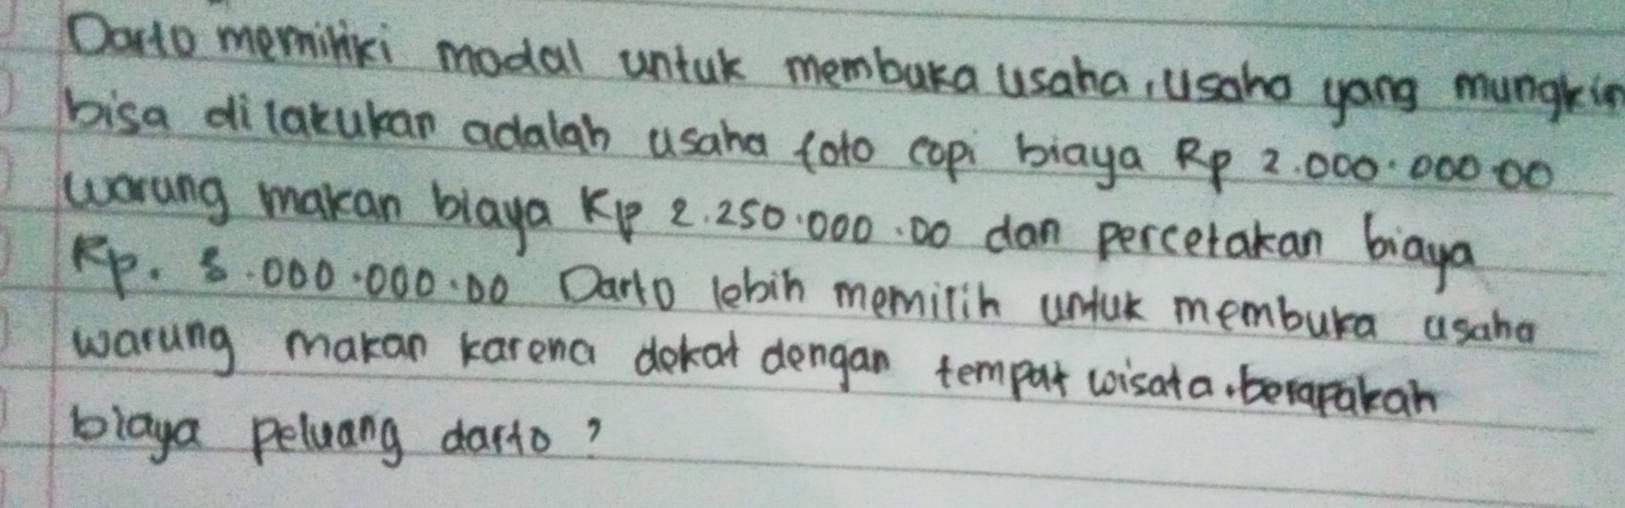 Darto memiliki modal untuk membuka usaha, usaha yang mungkin
bisa dilakukan adalah usaha foto copi biaya Rp 2.000.000.00
warung makan biaya Rp 2.250.000.00 dan percetakan biaya
Rp. 3.000.000.00 Darto lebih memilih untuk membuka usaha
warung makan karena dekat dengan tempat wisata. berapakah
biaya peluang darto?